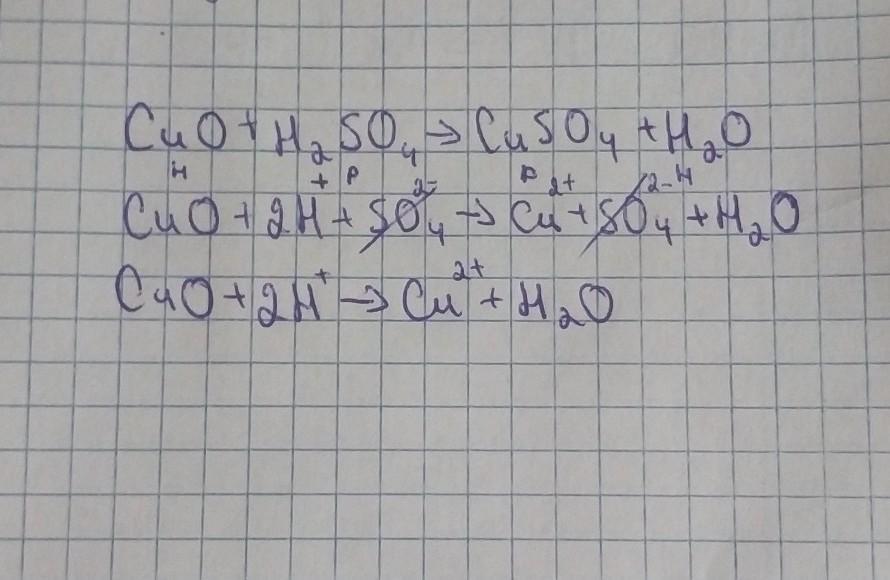 CuO + H₂SO₄ → CuSO₄ + H₂O
н р р н
CuO + 2H⁺ + SO₄²⁻ → Cu²⁺ + SO₄²⁻ + H₂O
CuO + 2H⁺ → Cu²⁺ + H₂O